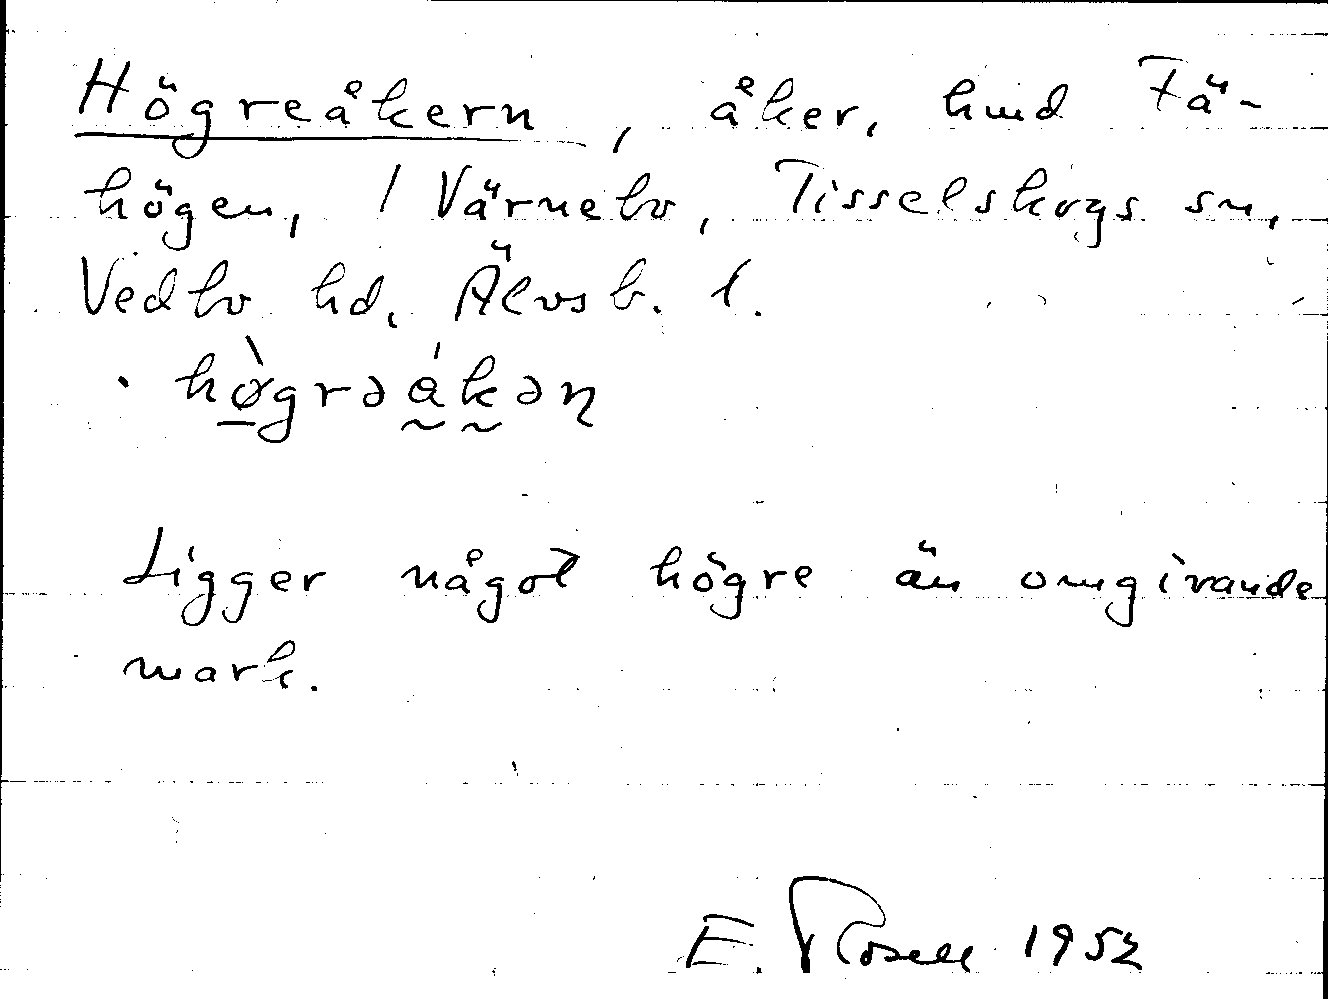 Högreåkern, åker, hmd Fä-
högen, 1 Värnebo, Tisselskogs sn,
Vedbo hd, Älvsb. l.
hø̀grəåkəɳ
Ligger något högre än omgivande
mark.
E. Rosell 1952